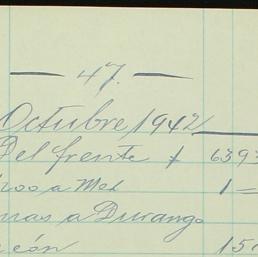 47.
Octubre, 1942
Del frente + 6393
a Mex 1 =
a Durango
15